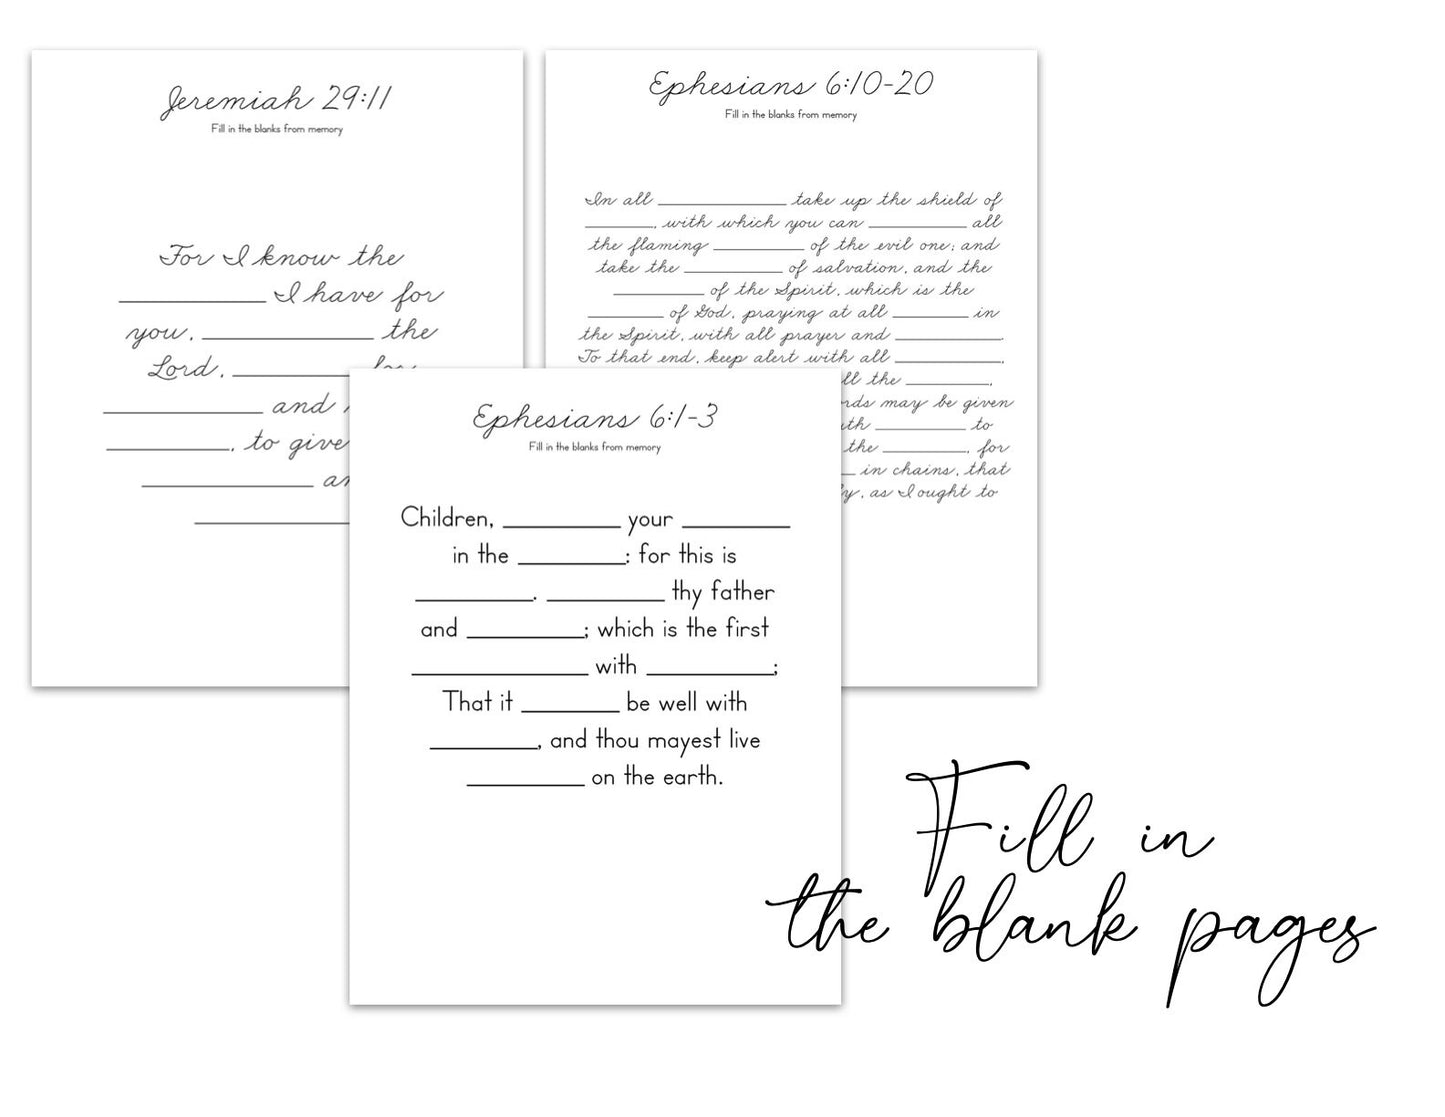 Jeremiah 29:11
Fill in the blanks from memory
For I know the
____________ I have for
you, ______________ the
Lord, ____________ for
_____________ and
__________, to give
______________ an
_____________
Ephesians 6:10-20
Fill in the blanks from memory
In all ______________ take up the shield of
_______, with which you can ___________ all
the flaming __________ of the evil one; and
take the ___________ of salvation, and the
__________ of the Spirit, which is the
________ of God, praying at all ________ in
the Spirit, with all prayer and ___________.
To that end, keep alert with all ___________,
ll the _________,
rds may be given
uth __________ to
the _________, for
_ in chains, that
y, as I ought to
Ephesians 6:1-3
Fill in the blanks from memory
Children, __________ your _________
in the _________: for this is
__________. __________ thy father
and __________; which is the first
_______________ with ___________;
That it ________ be well with
_________, and thou mayest live
__________ on the earth.
Fill in
the blank pages